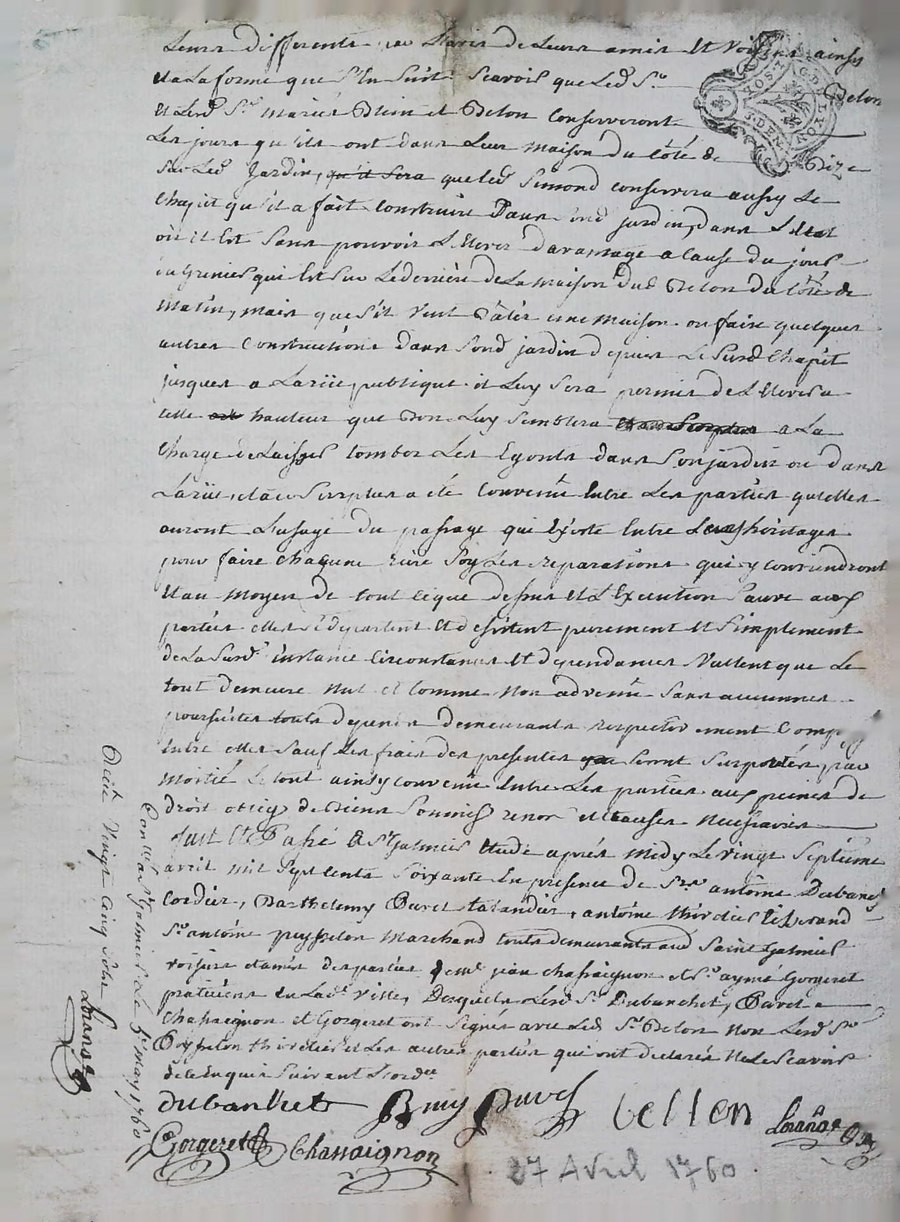 Leurs differents par L'avis de Leurs amis Et Voisins ainsy
Et a La forme que S'En Suit Scavoir que Led Sr Belon
Et Lesd Sr mariés Blein et Belon Conserveront
Les jours qu'ils ont dans Leur maison du Côté de Bize
Sur Led Jardin, qu'il Sera que led Simond conservera aussy Le
Chapit qu'il a fait Construire Dans Sond jardin, dans L'Etat
où il Est Sans pouvoir L'Elever davantage a Cause du jour
du Grenier qui Est Sur Le derrière de La maison dud Belon du Côté de
matin, mais que S'il Veut Bâtir une maison ou faire quelques
autres Constructions dans Sond jardin depuis Le Susd Chapit
jusques a La rüe publique il Luy Sera permis de L'Elever a
telle hauteur que Bon Luy Semblera a La
Charge de Laisser tomber Les Egouts dans Son jardin ou dans
La rüe, et au Surplus a été Convenû Entre Les parties qu'elles
auront L'usage du passage qui Existe Entre Leurs héritages
pour faire chacune rière Soy Les reparations qui y conviendront
Et au moyen de tout ce que dessus Et L'Execution Sauve aux
parties elles Se départent Et desistent purement Et Simplement
de La Susd instance Circonstances Et dependances Veullent que Le
tout demeure nul et Comme non advenû Sans aucunes
poursuites touts depens demeurants respectivement Comp
Entre elles Sauf Les frais des presentes Seront Surportés par
moitié Le tout ainsy convenû Entre Les parties aux peines de
droit oblig de Biens Soumis renon et Clauses necessaires
Fait Et Passé a St Galmier Etude après midy Le vingt Septième
avril mil Sept Cents Soixante En presence de Srs antoine Dubanchet
Cordier, Barthelemy Buret taландier, antoine thivelier tisserand
Sr antoine Peysselon Marchand touts demeurants aud Saint Galmier
voisins et amis des parties & de me jean chassaignon et Sr aymé Gorgeret
praticiens En Lad Ville, Desquels Lesd Sr Dubanchet, Buret
Chassaignon et Gorgeret ont Signés avec Led Sr Belon non Lesd Srs
Peysselon thivelier et Les autres parties qui ont declarés ne Le Scavoir
de ce Enquis Suivant L'ord
dubanchet
Bellon
Gorgeret
Chassaignon
27 Avril 1760
Con lle a St Galmier Le 5e may 1760
Vingt Cinq Sols